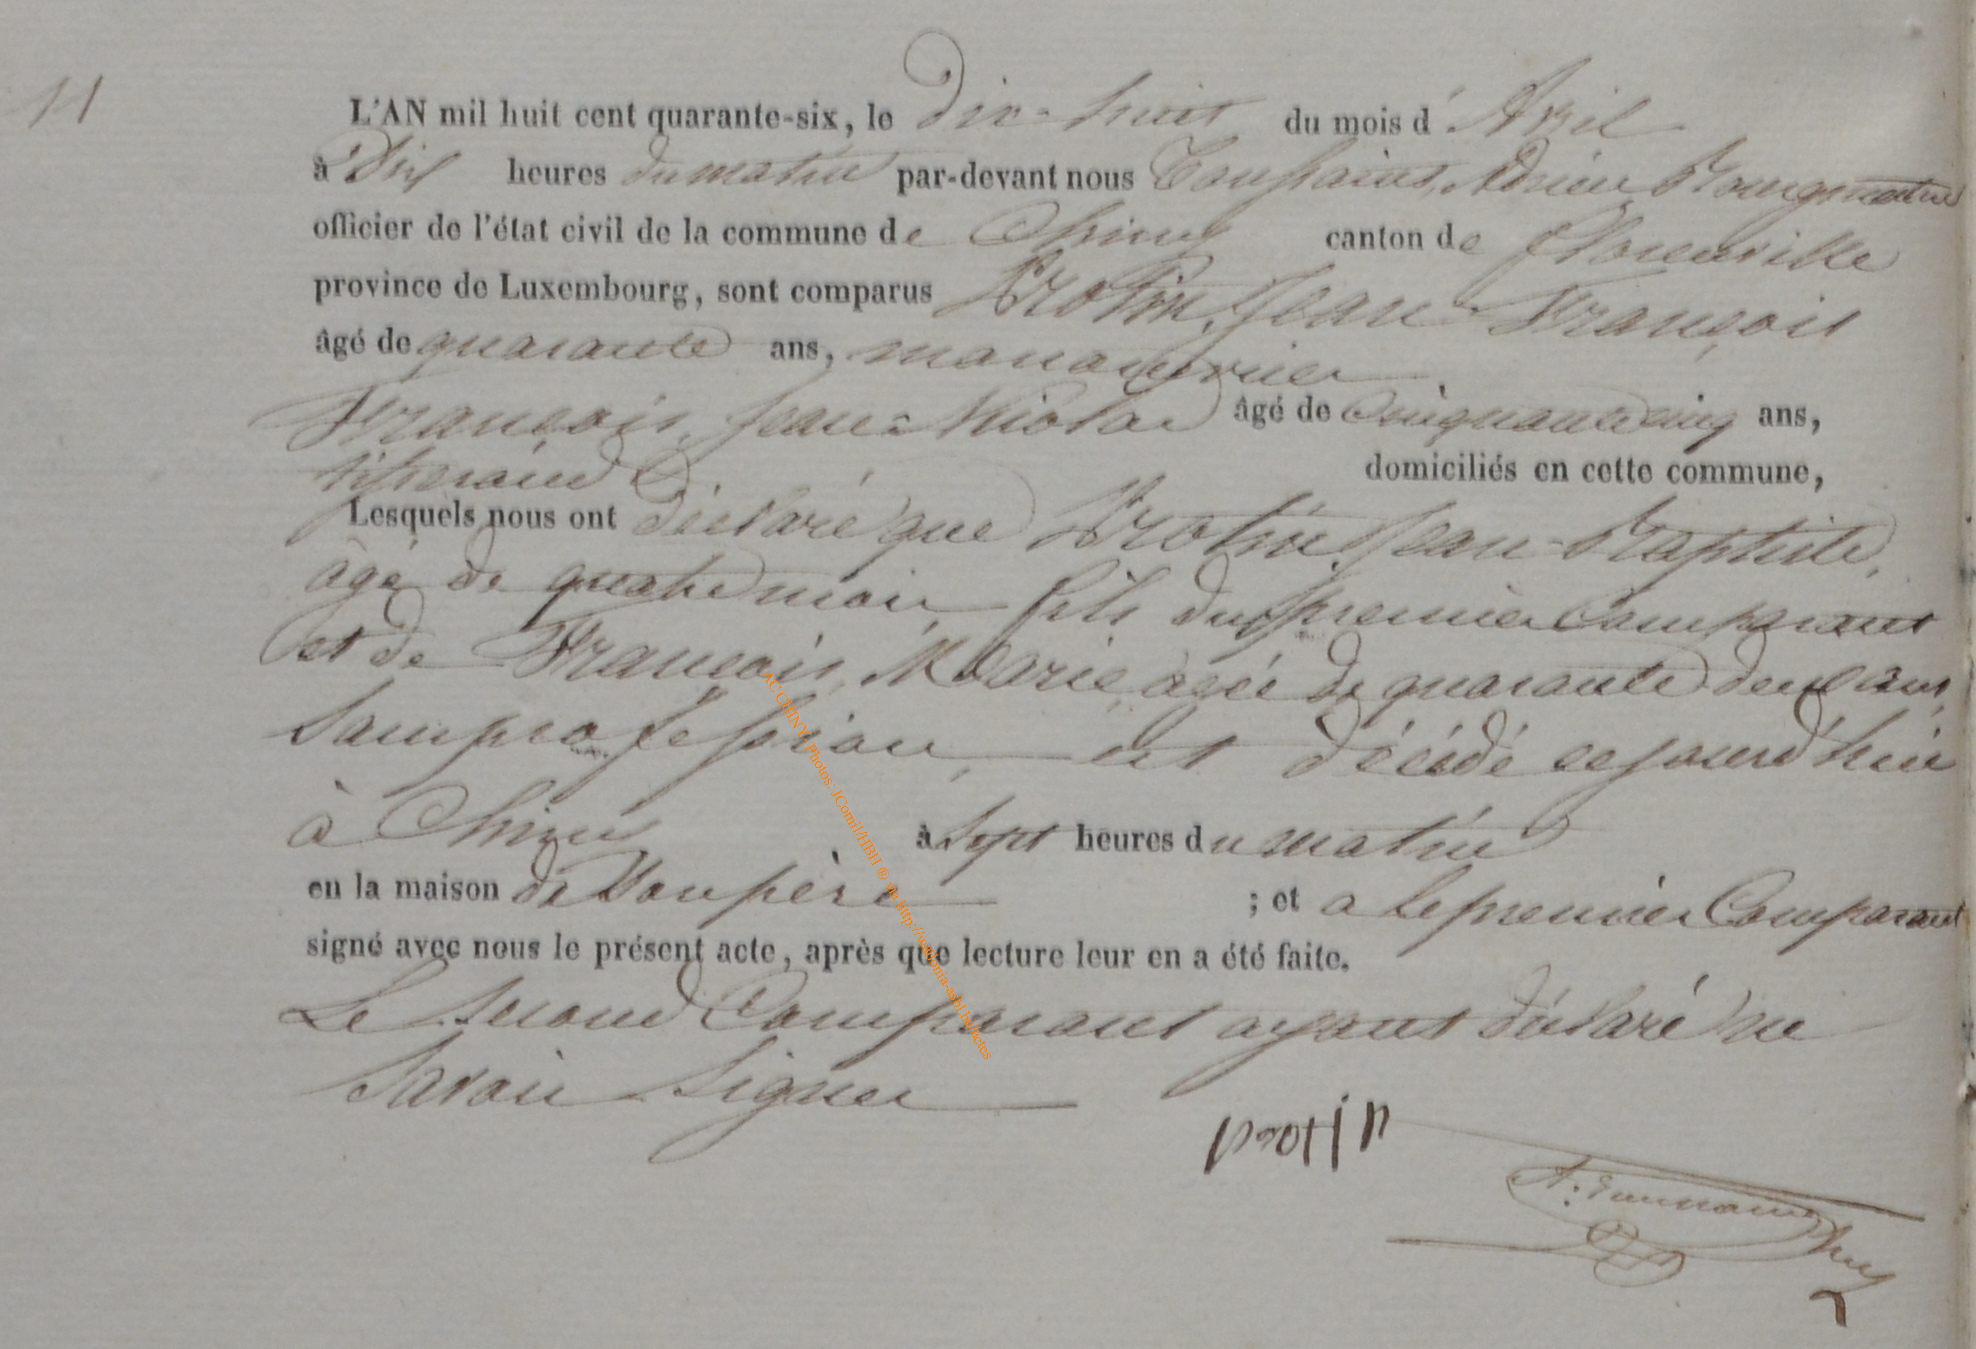 11
L'AN mil huit cent quarante-six, le Dix-huit du mois d'Avril
à Dix heures du matin par-devant nous Toussaint, Adrien Bourgmestre
officier de l'état civil de la commune de Chiny canton de florenville
province de Luxembourg, sont comparus Protin, Jean François
âgé de quarante ans, manouvrier
François, Jean-Nicolas âgé de Cinquante cinq ans,
tisserand domiciliés en cette commune,
Lesquels nous ont déclaré que Protin, Jean-Baptiste,
âgé de quatre mois, fils du premier Comparant
et de François, Marie, agée de quarante deux ans,
Sans profession, est décédé cejourd'hui
à Chiny à Sept heures du matin
en la maison de Son père ; et a le premier Comparant
signé avec nous le présent acte, après que lecture leur en a été faite.
Le Second Comparant ayant déclaré ne
Savoir Signer
protin
A. Toussaint
AC CHINY Photos: JCornil/HBH ©